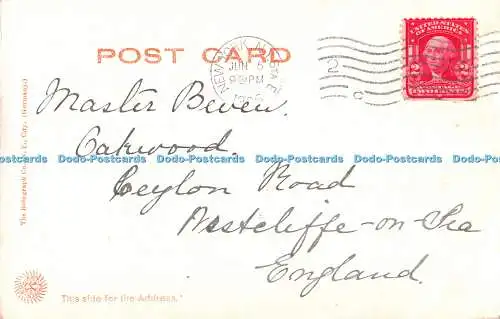 POST CARD
NEW YORK, N.Y.
JUN 6
PM
2
C
UNITED STATES OF AMERICA
2 2
TWO CENTS
Master Beven.
Oakwood.
Ceylon Road
Westcliffe-on-Sea
England.
Dodo-Postcards Dodo-Postcards Dodo-Postcards Dodo-Postcards Dodo-Postcards Dodo-Postcards
The Rotograph Co., N. Y. City. (Germany.)
This side for the Address.